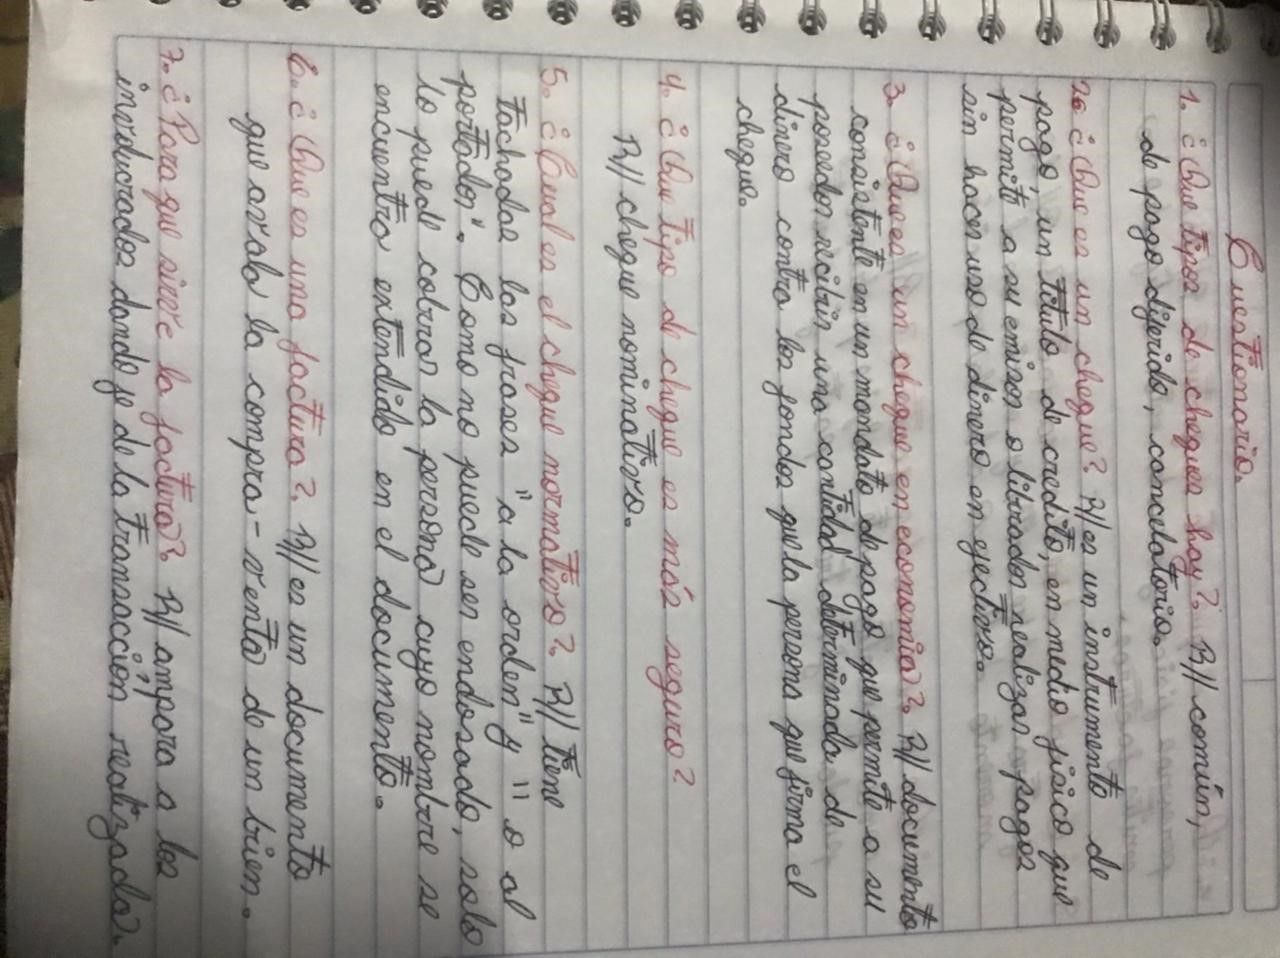 Cuestionario.
1. ¿Que tipos de cheques hay? R// común,
de pago diferido, cancelatorio.
2. ¿Que es un cheque? R// es un instrumento de
pago un titulo de credito, en medio fisico que
permite a su emisor o librador realizar pagos
sin hacer uso de dinero en efectivo.
3. ¿Que es un cheque en economia? R// documento
consistente en un mandato de pago que permite a su
poseedor recibir una cantidad determinada de
dinero contra los fondos que la persona que firma el
cheque.
4. ¿Que tipo de cheque es más seguro?
R// cheque nominativo.
5. ¿Cual es el cheque normativo? R// tiene
tachadas las frases "a la orden" y "o al
portador". Como no puede ser endosado, solo
lo puede cobrar la persona cuyo nombre se
encuentra extendido en el documento.
6. ¿Que es una factura? R// es un documento
que avala la compra-venta de un bien.
7. ¿Para que sirve la factura? R// ampara a los
involucrados dando fe de la transacción realizada.